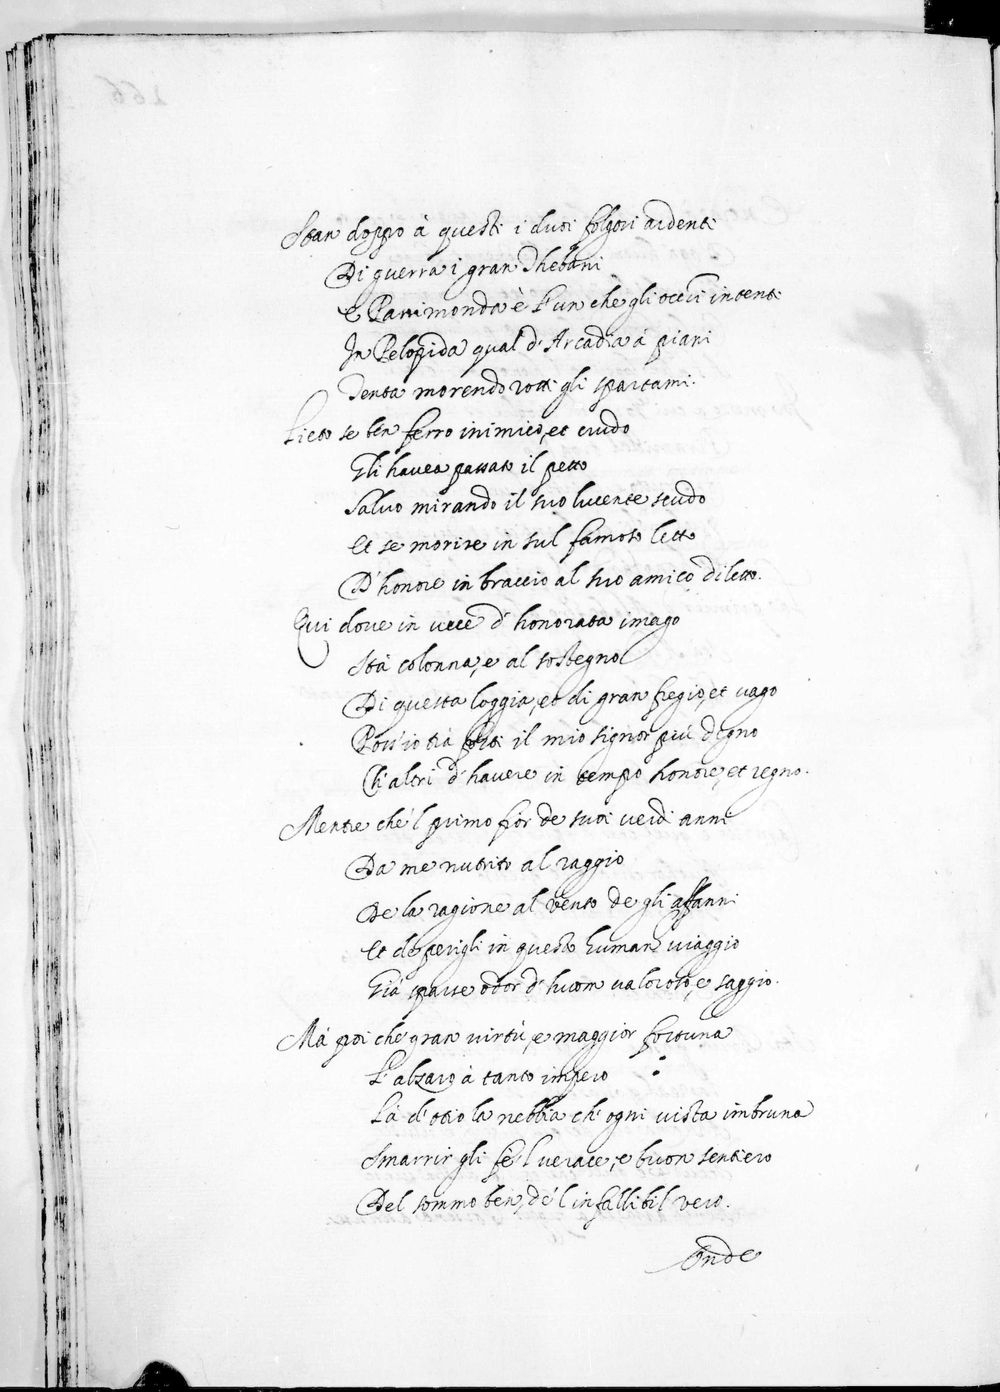 Stan doppo à questi i duoi folgori ardenti
Di guerra i gran Thebani
E Pami monda è l'un che gli occhi intenti
In Pelopida qual d'Arcadia a piani
Tenta morendo rotti gli spartami.
Lieto se ben ferro inimico, et crudo
Gli havea passato il petto
Salvo mirando il suo lucente scudo
Et se morire in sul famoso letto
D'honore in braccio al suo amico diletto.
Qui dove in vece d'honorata imago
Stà colonna, e al sostegno
Di questa loggia, et di gran fregio, et vago
Poss'io già porti il mio signor più degno
Ch'altri d'havere in tempo honore, et regno.
Mentre che'l primo fior de suoi verdi anni
Da me nutrito al raggio
De la ragione al vento de gli affanni
Et de perigli in questo human viaggio
Già sparse odor d'huom valoroso, e saggio.
Mà poi che gran virtù, e maggior fortuna
L'alzaro à tanto impero
Là d'otio la nebbia ch'ogni vista imbruna
Smarrir gli fè'l verace, e buon sentiero
Del sommo ben, de'l infallibil vero.
Onde